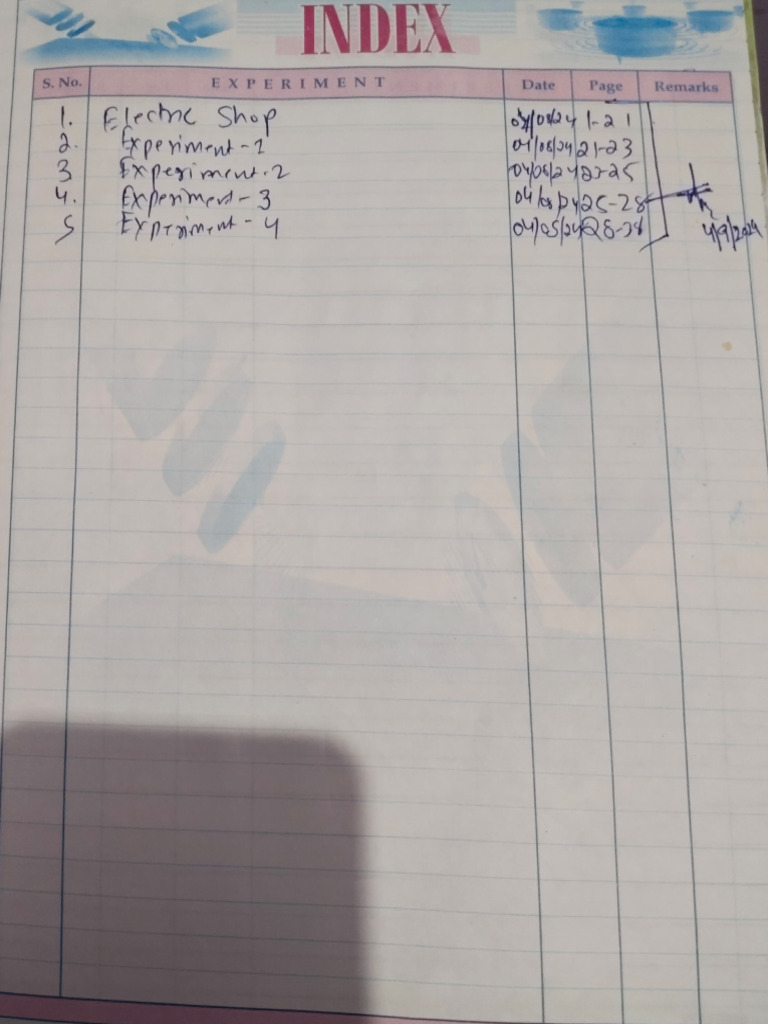 INDEX
S. No. EXPERIMENT Date Page Remarks
1. Electric Shop 04/08/24 1-21
2. Experiment-1 04/08/24 21-23
3 Experiment-2 04/08/24 23-25
4. Experiment-3 04/08/24 25-28
5 Experiment-4 04/05/24 28-38
4/9/2024